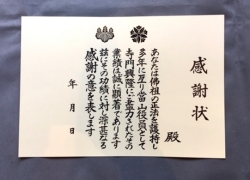 感謝状
殿
あなたは佛祖の正法を護持し
多年に亘り當山役員として
寺門興隆に盡力されその
業績は誠に顕著であります
茲にその功績に対し深甚なる
感謝の意を表します
年 月 日